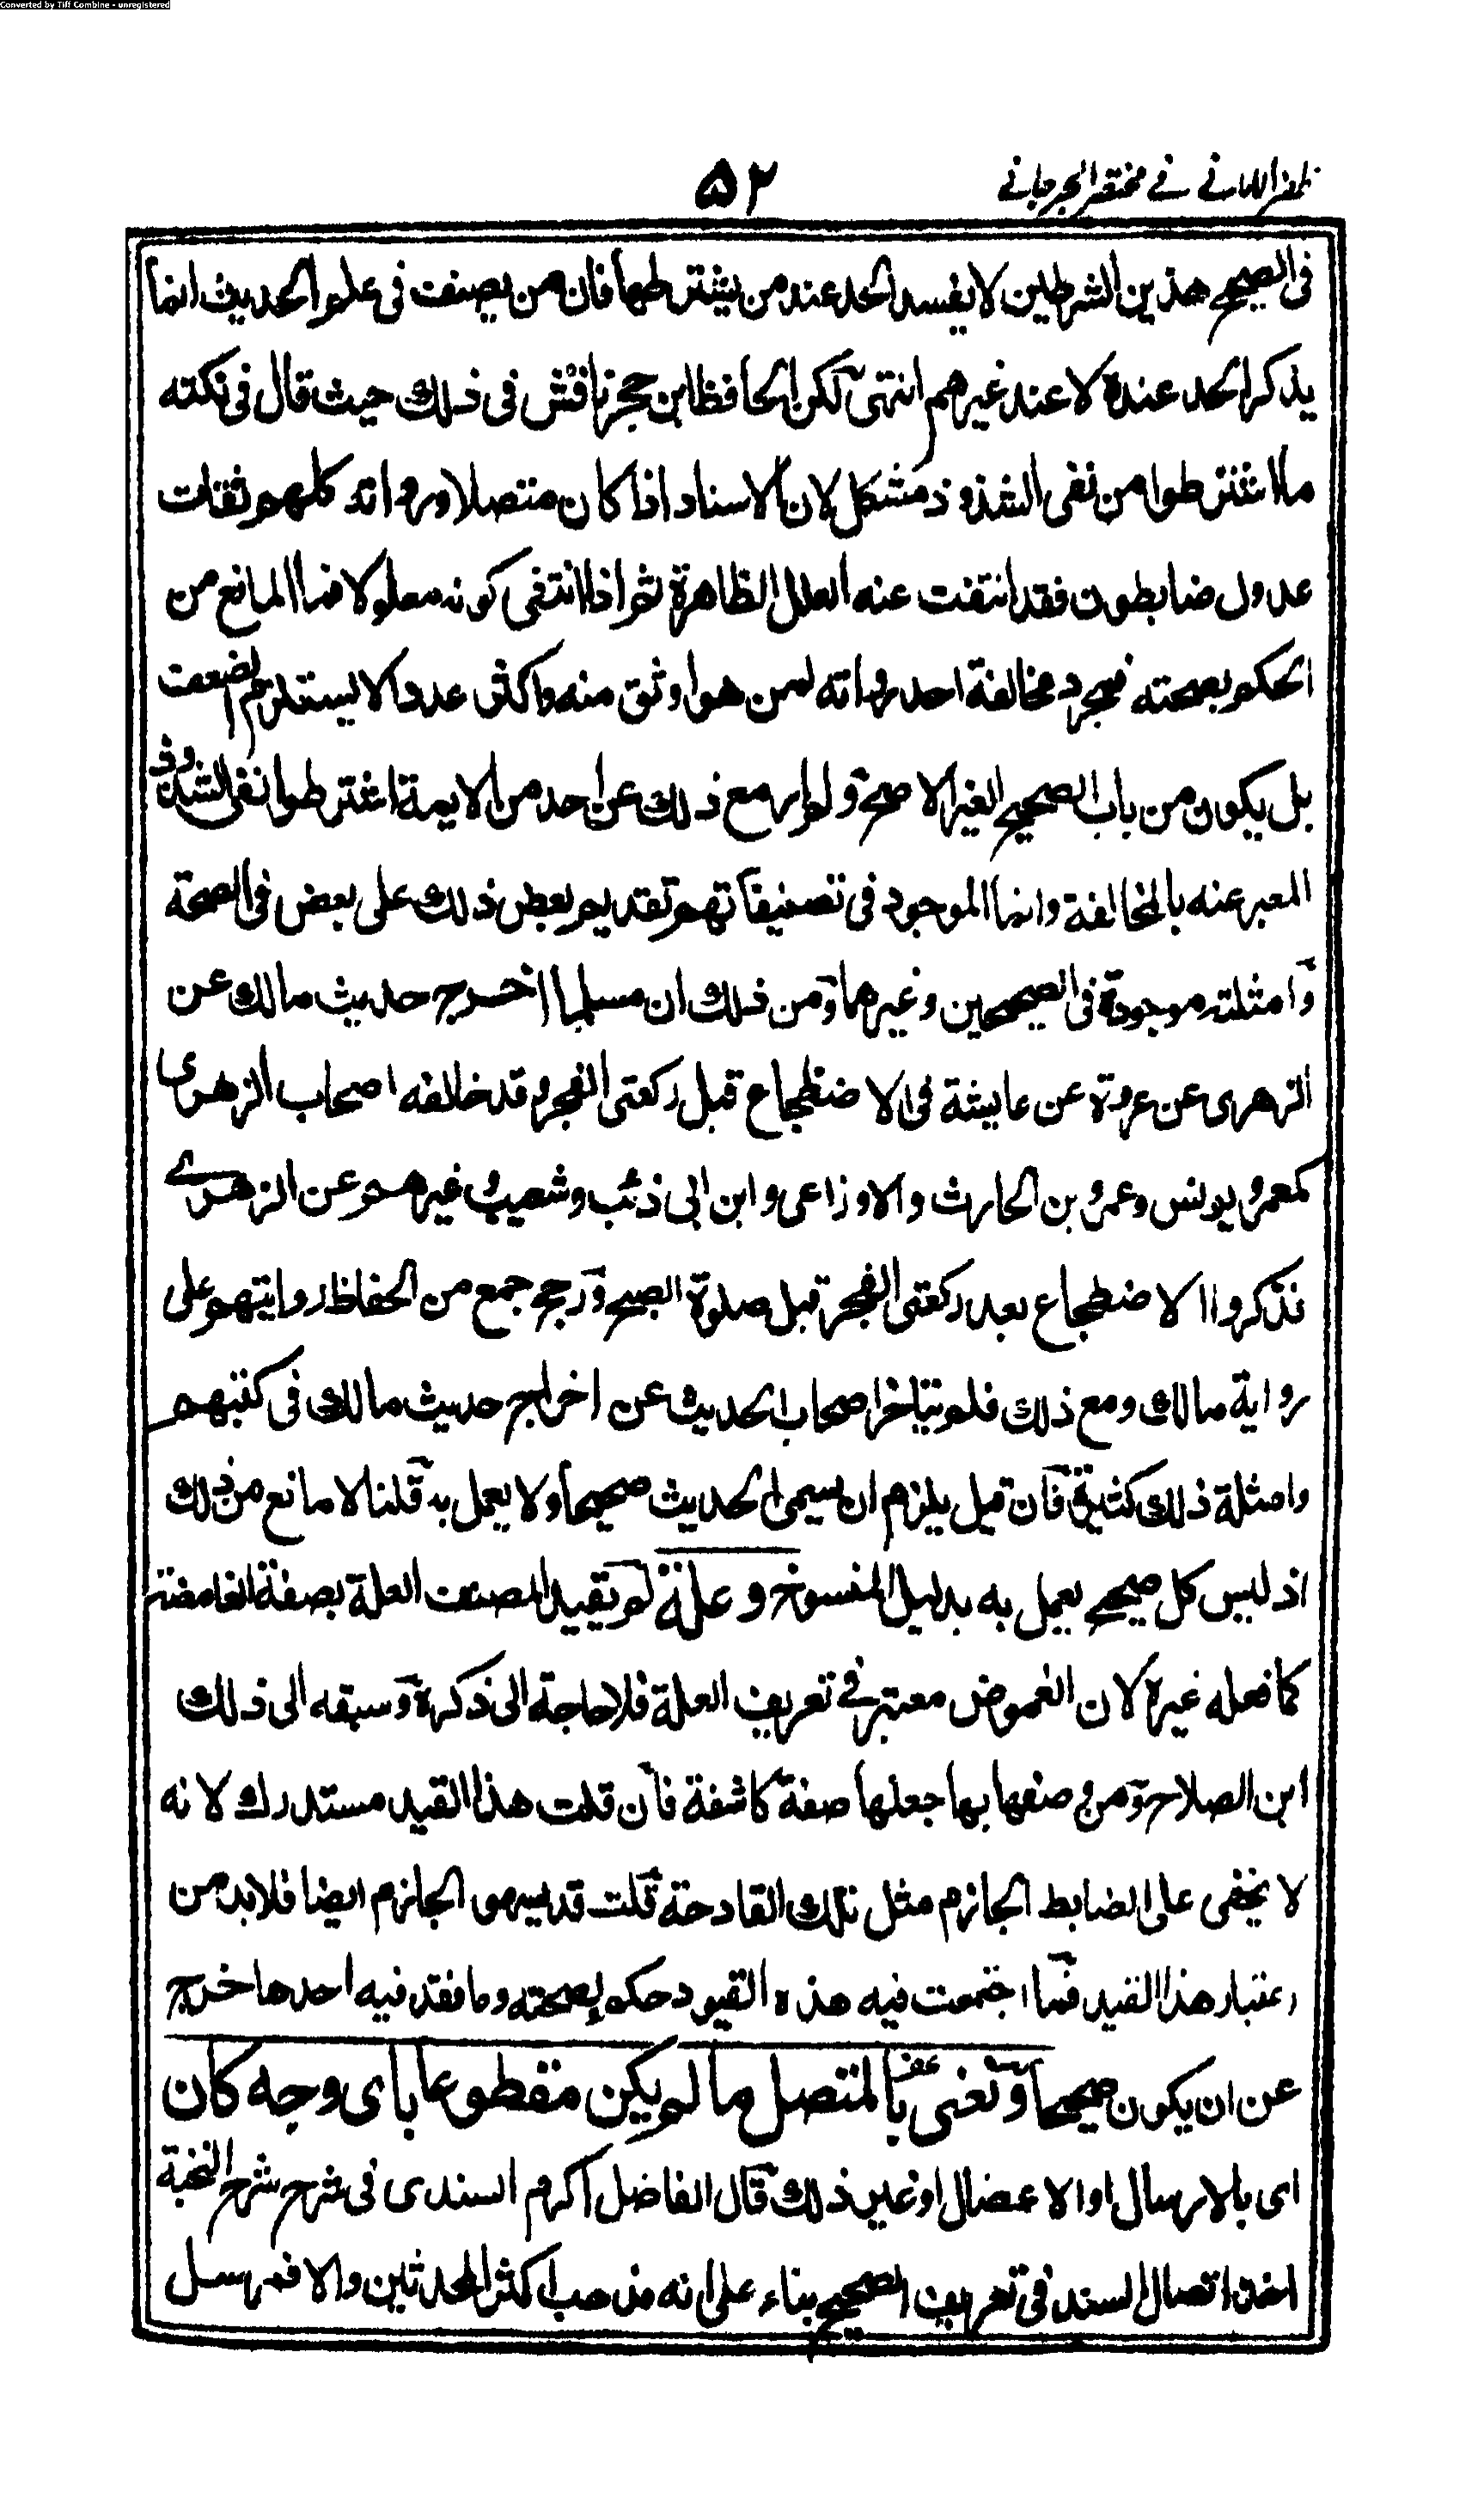 Converted by Tiff Combine - unregistered
ظفر الامانے فے مختصر الجرجانے
۵۲
فى الصحيح هذين الشرطين لا يفسد الحد عند من يشترطهما فان من يصنف فى علوم الحديث انما
يذكر الحد عنده لا عند غيرهم انتهى لكن الحافظ ابن حجر ناقش فى ذلك حيث قال فى نكته
ما اشترطوا من نفى الشذوذ مشكل لان الاسناد اذا كان متصلا ورواته كلهم ثقات
عدول ضابطون فقد انتفت عنه العلل الظاهرة ثم اذا انتفى كونه معلولا فما المانع من
الحكم بصحته فمجرد مخالفة احد رواته لمن هو اوثق منه واكثر عددا لا يستلزم الضعف
بل يكون من باب الصحيح الغير الاصح ولم ار مع ذلك عن احد من الايمة اشترطوا نفى الشذوذ
المعبر عنه بالمخالفة وانما الموجود فى تصنيفاتهم تقديم بعض ذلك على بعض فى الصحة
وامثلته موجودة فى الصحيحين وغيرهما ومن ذلك ان مسلما اخرج حديث مالك عن
الزهرى عن عروة عن عايشة فى الاضطجاع قبل ركعتى الفجر وقد خالفه اصحاب الزهرى
كمعمر ويونس وعمرو بن الحارث والاوزاعى وابن ابى ذئب وشعيب وغيرهم عن الزهرے
فذكروا الاضطجاع بعد ركعتى الفجر قبل صلوة الصبح ورجح جمع من الحفاظ روايتهم على
رواية مالك ومع ذلك فلم يتاخر اصحاب الحديث عن اخراج حديث مالك فى كتبهم
وامثلة ذلك كثيرة فان قيل يلزم ان يسمى الحديث صحيحا ولا يعمل به قلنا لا مانع من ذلك
اذ ليس كل صحيح يعمل به بدليل المنسوخ وعلة لم يقيد المصنف العلة بصفة الغامضة
كما فعله غيره لان الغموض معتبر فے تعريف العلة فلا حاجة الى ذكره وسبقه الى ذلك
ابن الصلاح ومن وصفها بها جعلها صفة كاشفة فان قلت هذا القيد مستدرك لانه
لا يخفى على الضابط الجازم مثل تلك القادحة قلت قد يسهو الجازم ايضا فلا بد من
اعتبار هذا القيد فما اجتمعت فيه هذه القيود حكم بصحته وما فقد فيه احدها خرج
عن ان يكون صحيحا ونعنى بالمتصل ما لم يكن مقطوعا باى وجه كان
اى بالارسال او الاعضال او غير ذلك قال الفاضل اكرم السندى فى شرح شرح النخبة
اخذ اتصال السند فى تعريف الصحيح بناء على انه مذهب اكثر المحدثين والا فمرسل